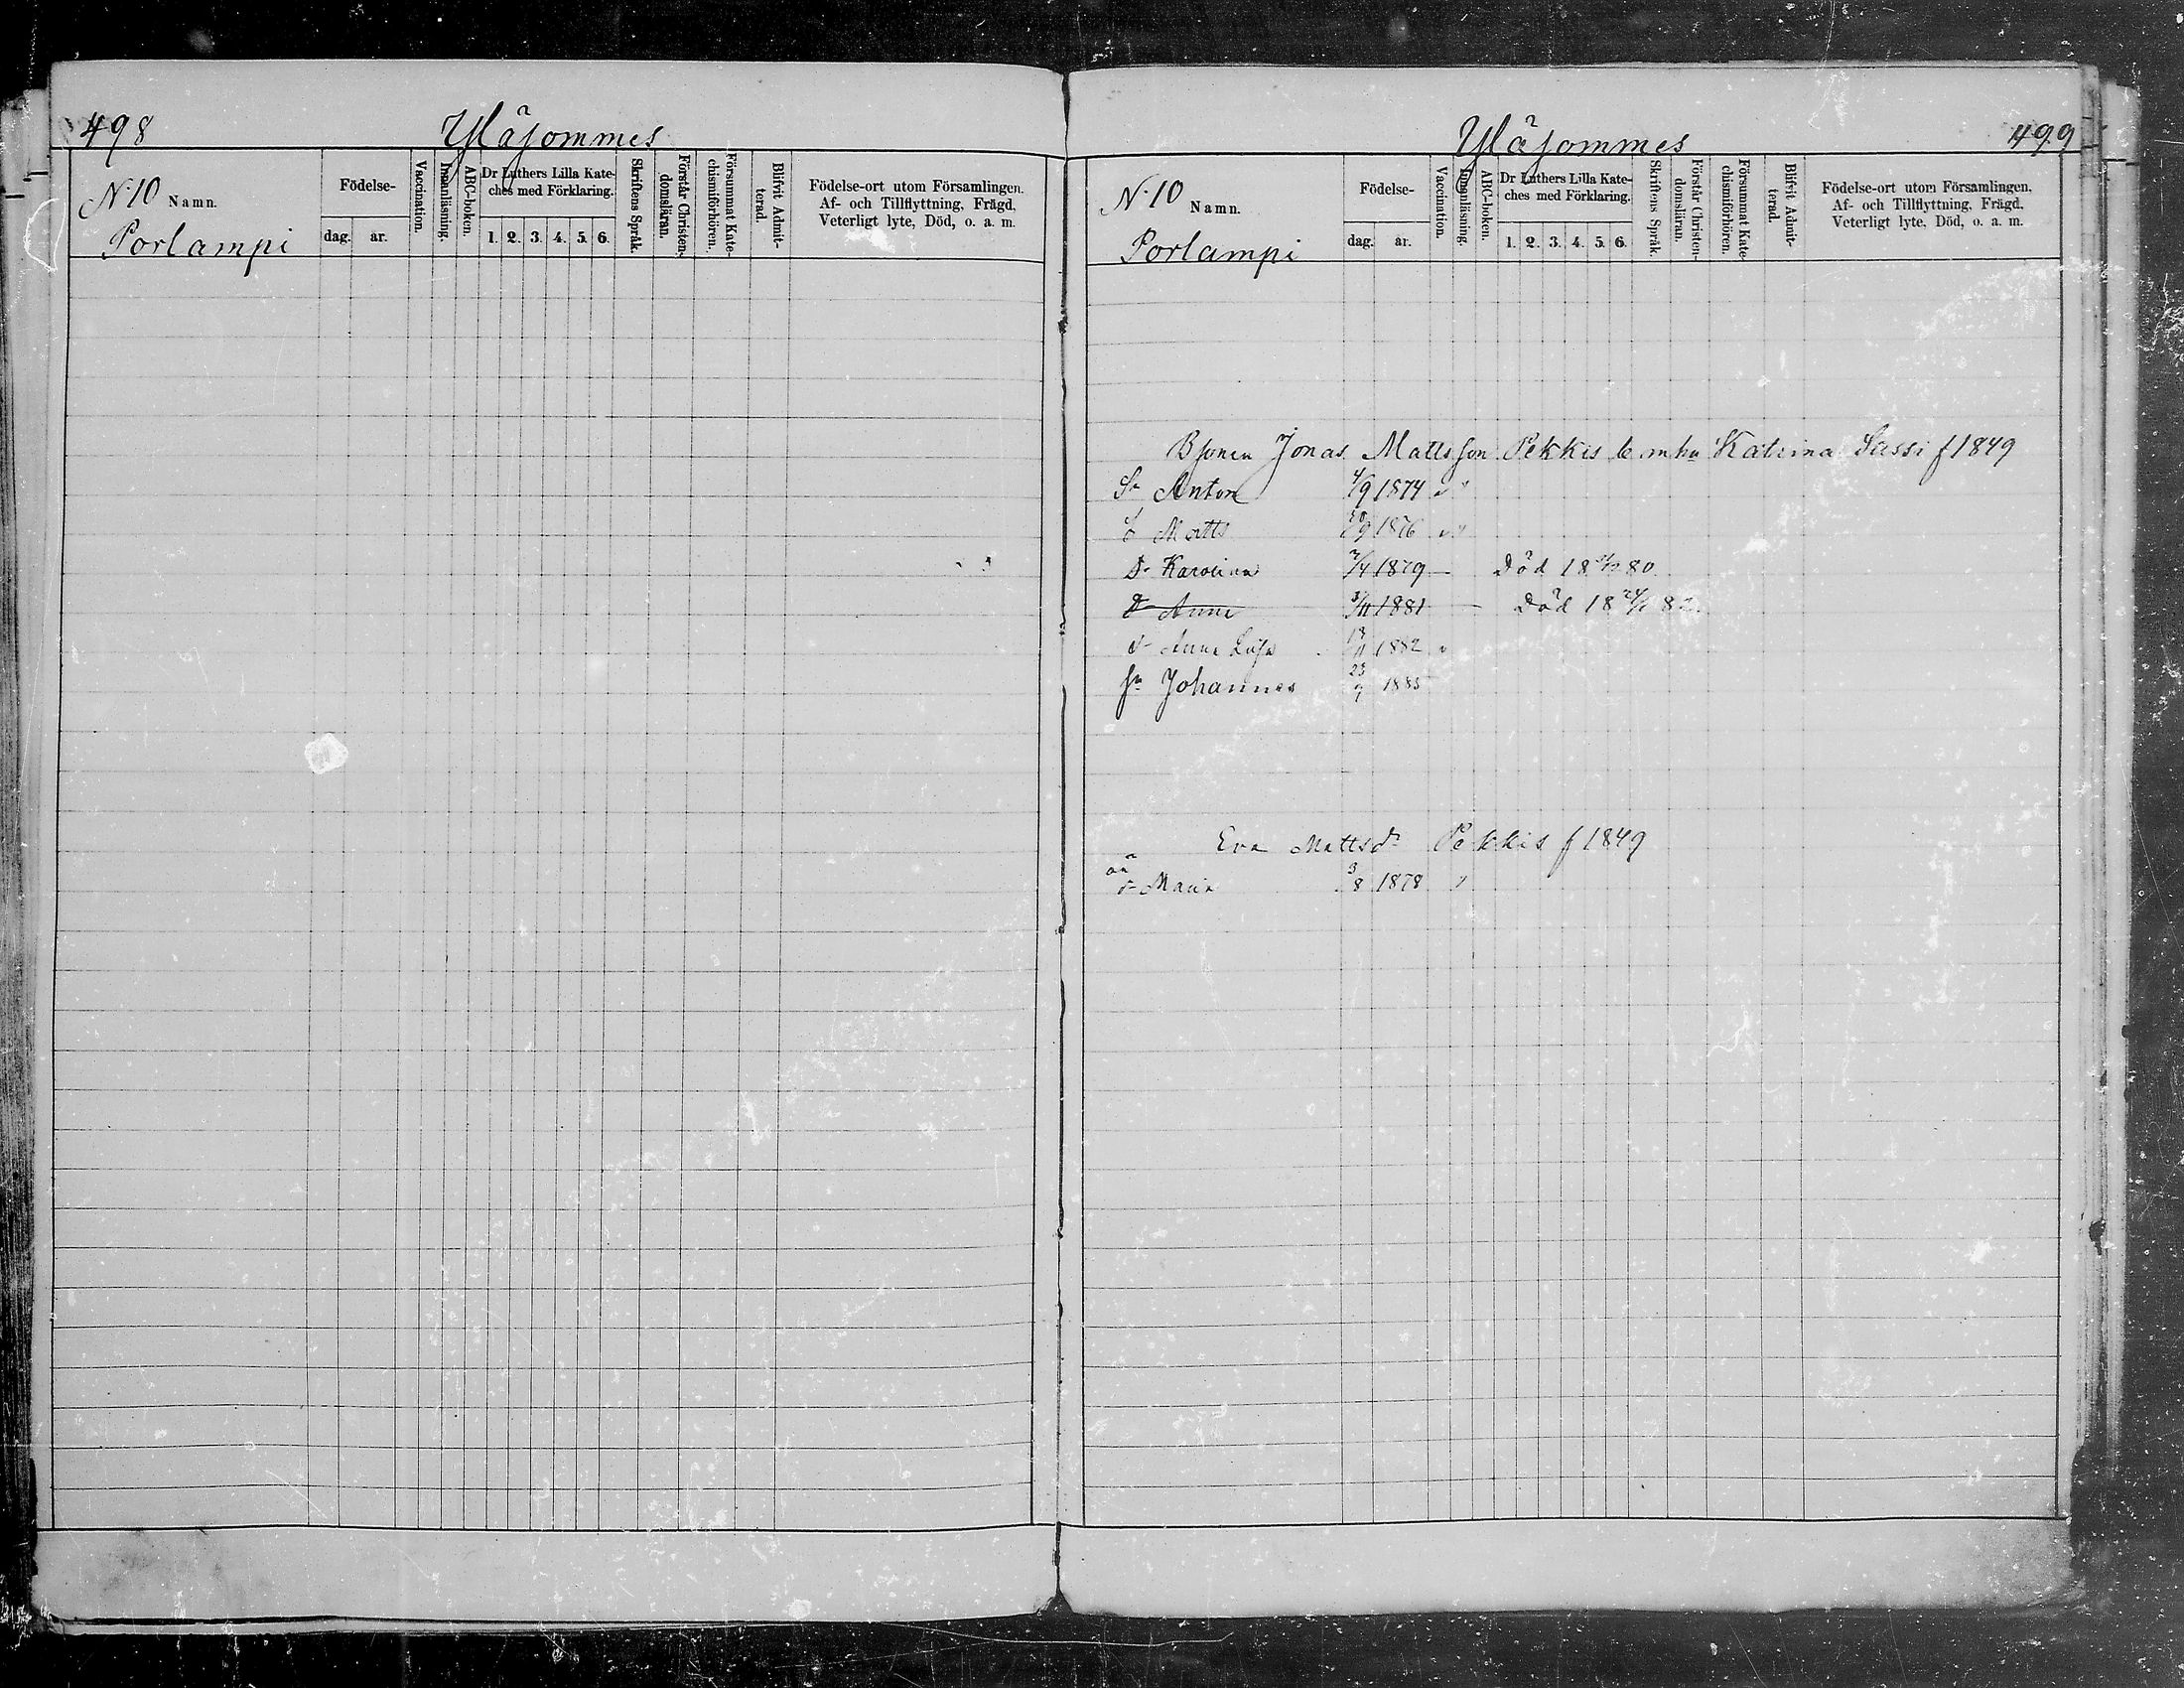 498 Yläjommes
N:10 Namn. Födelse- Vaccination. Innanläsning. ABC-boken. Dr Luthers Lilla Kate- Skriftens Språk. Förstår Christen- Försummat Kate- Blifvit Admit- Födelse-ort utom Församlingen.
ches med Förklaring. domsläran. chismiförhören. terad. Af- och Tillflyttning, Frägd,
Porlampi dag. år. 1. 2. 3. 4. 5. 6. Veterligt lyte, Död, o. a. m.
Yläjommes 499
N:10 Namn. Födelse- Vaccination. Innanläsning. ABC-boken. Dr Luthers Lilla Kate- Skriftens Språk. Förstår Christen- Försummat Kate- Blifvit Admit- Födelse-ort utom Församlingen.
ches med Förklaring. domsläran. chismiförhören. terad. Af- och Tillflyttning, Frägd,
Porlampi dag. år. 1. 2. 3. 4. 5. 6. Veterligt lyte, Död, o. a. m.
Jonas Mattsson Pekkis Katrina Sassi f 1849
Sn Anton 4/9 1874
S Matts 1876
Dr Karolina 2/4 1879 Död 18 80
Dr Anna 3/11 1881 Död 18 82
dr Anna Lisa 13/11 1882
sn Johannes 23/9 1885
Eva Mattsdr Pekkis f 1849
oä
dr Maria 3/8 1878